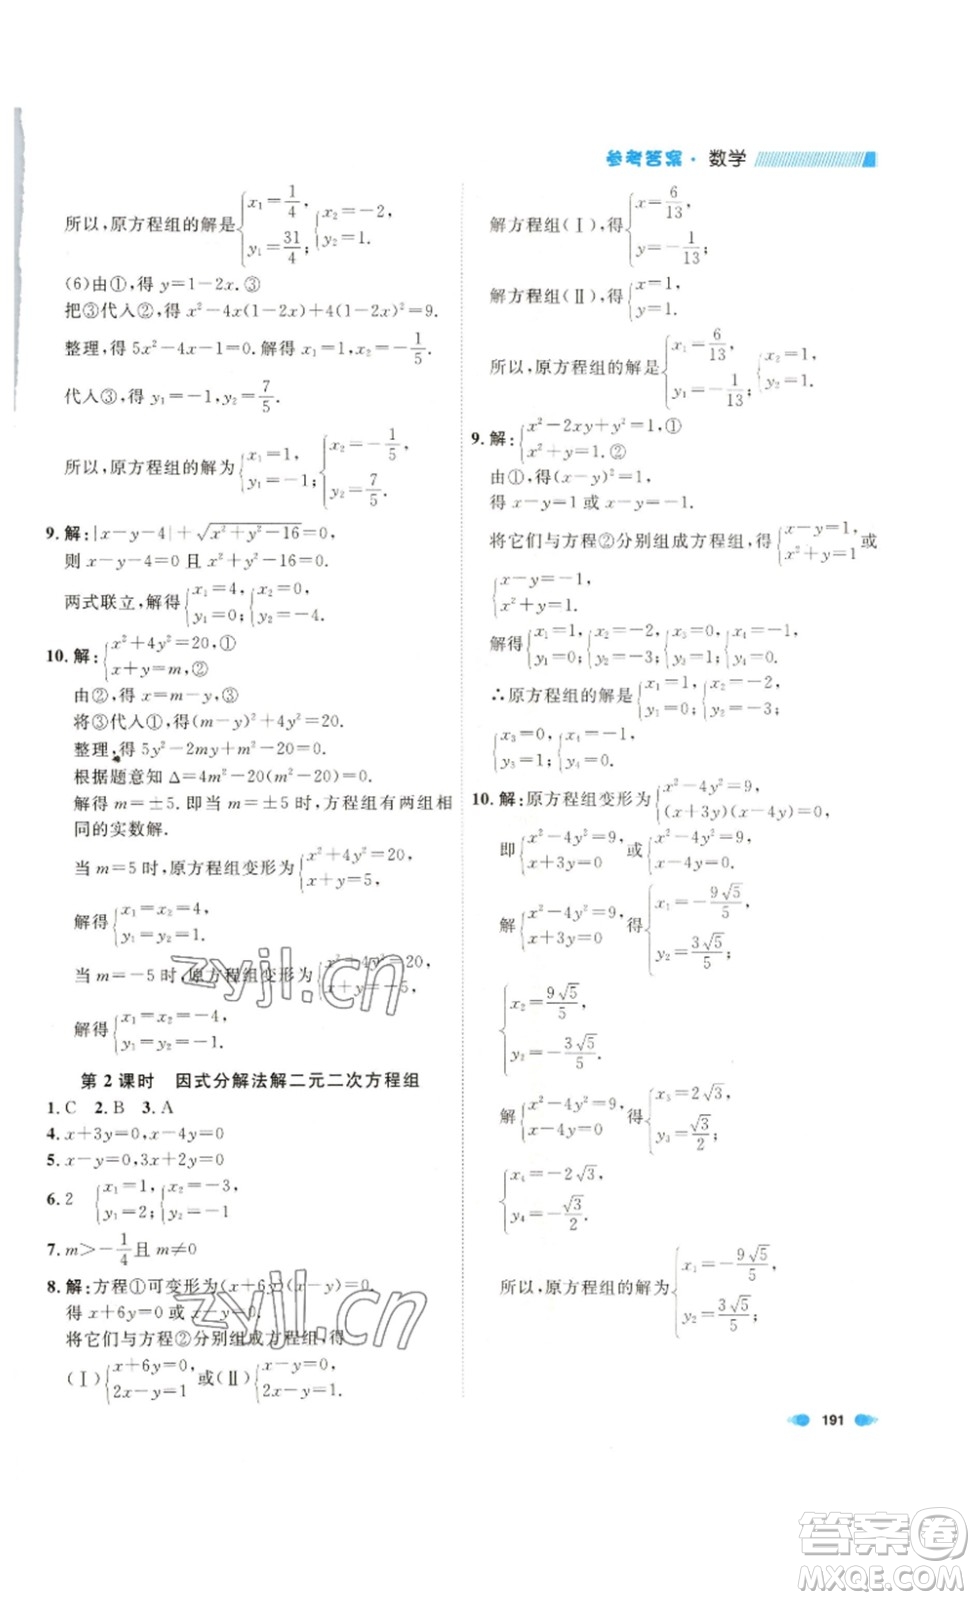 参考答案·数学
所以,原方程组的解是{x₁=1/4, y₁=31/4; {x₂=-2, y₂=1.
(6)由①,得 y=1-2x.③
把③代入②,得 x²-4x(1-2x)+4(1-2x)²=9.
整理,得 5x²-4x-1=0.解得 x₁=1,x₂=-1/5.
代入③,得 y₁=-1,y₂=7/5.
所以,原方程组的解为{x₁=1, y₁=-1; {x₂=-1/5, y₂=7/5.
9.解:|x-y-4|+√(x²+y²-16)=0,
则 x-y-4=0 且 x²+y²-16=0.
两式联立,解得{x₁=4, y₁=0; {x₂=0, y₂=-4.
10.解:{x²+4y²=20,① x+y=m,②
由②,得 x=m-y,③
将③代入①,得(m-y)²+4y²=20.
整理,得 5y²-2my+m²-20=0.
根据题意知 Δ=4m²-20(m²-20)=0,
解得 m=±5. 即当 m=±5 时,方程组有两组相
同的实数解.
当 m=5 时,原方程组变形为{x²+4y²=20, x+y=5,
解得{x₁=x₂=4, y₁=y₂=1.
当 m=-5 时,原方程组变形为{x²+4y²=20, x+y=-5,
解得{x₁=x₂=-4, y₁=y₂=-1.
第 2 课时 因式分解法解二元二次方程组
1. C 2. B 3. A
4. x+3y=0,x-4y=0
5. x-y=0,3x+2y=0
6. 2 {x₁=1, y₁=2; {x₂=-3, y₂=-1
7. m>-1/4 且 m≠0
8.解:方程①可变形为(x+6y)(x-y)=0.
得 x+6y=0 或 x-y=0.
将它们与方程②分别组成方程组,得
(Ⅰ){x+6y=0, 2x-y=1 或(Ⅱ){x-y=0, 2x-y=1.
解方程组(Ⅰ),得{x=6/13, y=-1/13;
解方程组(Ⅱ),得{x=1, y=1.
所以,原方程组的解是{x₁=6/13, y₁=-1/13; {x₂=1, y₂=1.
9.解:{x²-2xy+y²=1,① x²+y=1.②
由①,得(x-y)²=1,
得 x-y=1 或 x-y=-1.
将它们与方程②分别组成方程组,得{x-y=1, x²+y=1 或
{x-y=-1, x²+y=1.
解得{x₁=1, y₁=0; {x₂=-2, y₂=-3; {x₃=0, y₃=1; {x₄=-1, y₄=0.
∴原方程组的解是{x₁=1, y₁=0; {x₂=-2, y₂=-3;
{x₃=0, y₃=1; {x₄=-1, y₄=0.
10.解:原方程组变形为{x²-4y²=9, (x+3y)(x-4y)=0,
即{x²-4y²=9, x+3y=0 或{x²-4y²=9, x-4y=0.
解{x²-4y²=9, x+3y=0 得{x₁=-9√5/5, y₂=3√5/5;
{x₂=9√5/5, y₂=-3√5/5;
解{x²-4y²=9, x-4y=0 得{x₃=2√3, y₃=√3/2;
{x₄=-2√3, y₄=-√3/2.
所以,原方程组的解为{x₁=-9√5/5, y₁=3√5/5;
191
zyjl.cn
zyjl.cn
答案卷
MXQE.COM